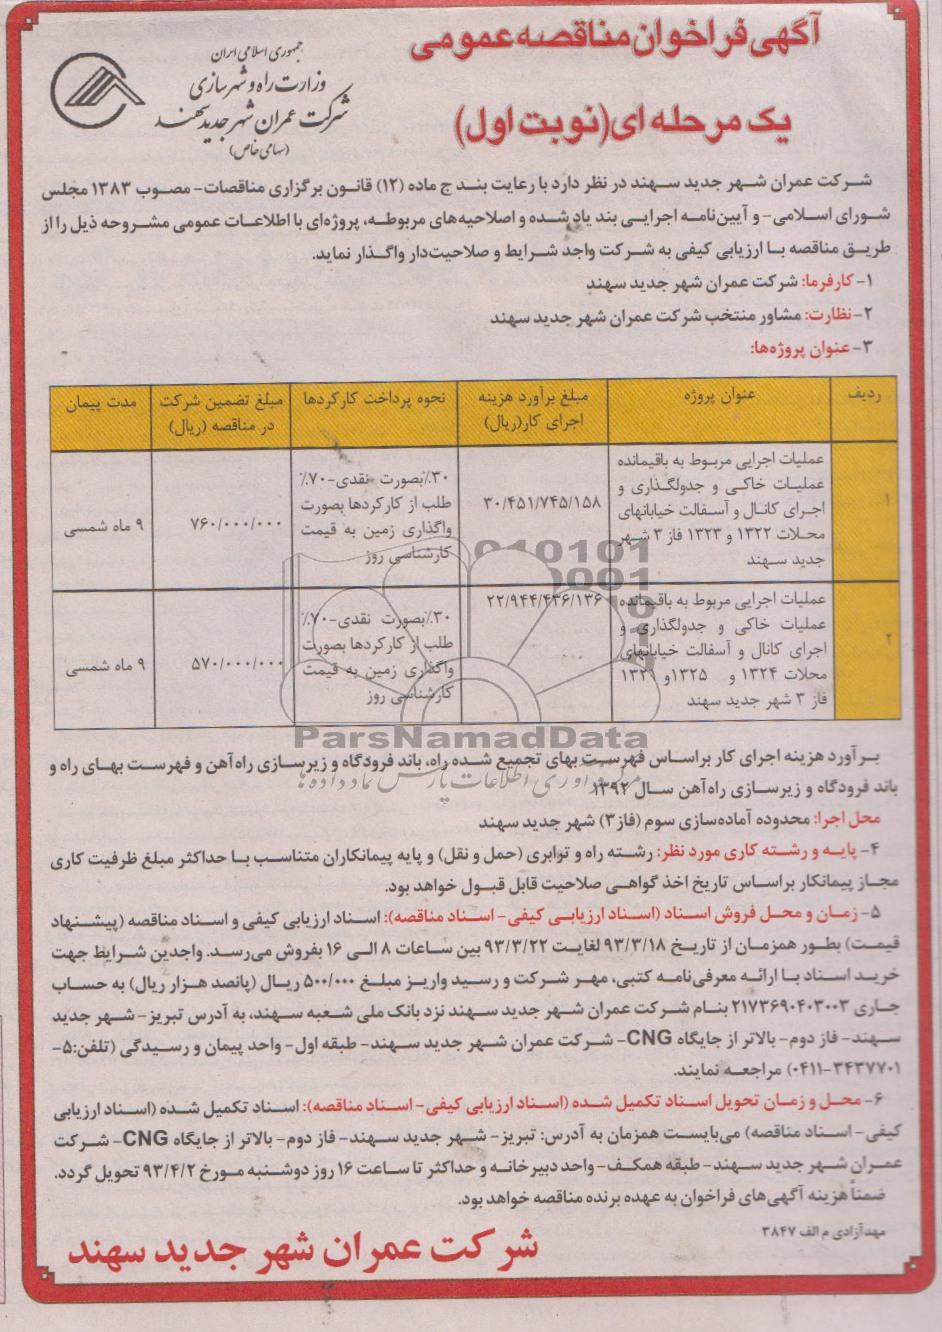 آگهی فراخوان مناقصه عمومی
یک مرحله ای (نوبت اول)
جمهوری اسلامی ایران
وزارت راه و شهرسازی
شرکت عمران شهر جدید سهند
(سهامی خاص)
شرکت عمران شهر جدید سهند در نظر دارد با رعایت بند ج ماده (۱۲) قانون برگزاری مناقصات- مصوب ۱۳۸۳ مجلس
شورای اسلامی- و آیین‌نامه اجرایی بند یاد شده و اصلاحیه‌های مربوطه، پروژه‌ای با اطلاعات عمومی مشروحه ذیل را از
طریق مناقصه با ارزیابی کیفی به شرکت واجد شرایط و صلاحیت‌دار واگذار نماید.
۱- کارفرما: شرکت عمران شهر جدید سهند
۲-نظارت: مشاور منتخب شرکت عمران شهر جدید سهند
۳-عنوان پروژه‌ها:
ردیف
عنوان پروژه
مبلغ برآورد هزینه
اجرای کار(ریال)
نحوه پرداخت کارکردها
مبلغ تضمین شرکت
در مناقصه (ریال)
مدت پیمان
۱
عملیات اجرایی مربوط به باقیمانده
عملیات خاکی و جدولگذاری و
اجرای کانال و آسفالت خیابانهای
محلات ۱۳۲۲ و ۱۳۲۳ فاز ۳ شهر
جدید سهند
۳۰/۴۵۱/۷۴۵/۱۵۸
۳۰٪بصورت نقدی-۷۰٪
طلب از کارکردها بصورت
واگذاری زمین به قیمت
کارشناسی روز
۷۶۰/۰۰۰/۰۰۰
۹ ماه شمسی
۲
عملیات اجرایی مربوط به باقیمانده
عملیات خاکی و جدولگذاری و
اجرای کانال و آسفالت خیابانهای
محلات ۱۳۲۴ و ۱۳۲۵و
فاز ۳ شهر جدید سهند
۲۲/۹۴۴/۴۳۶/۱۳۶
۳۰٪بصورت نقدی-۷۰٪
طلب از کارکردها بصورت
واگذاری زمین به قیمت
کارشناسی روز
۵۷۰/۰۰۰/۰۰۰
۹ ماه شمسی
ParsNamadData
برآورد هزینه اجرای کار براساس فهرست بهای تجمیع شده راه، باند فرودگاه و زیرسازی راه‌آهن و فهرست بهای راه و
باند فرودگاه و زیرسازی راه‌آهن سال ۱۳۹۲
محل اجرا: محدوده آماده‌سازی سوم (فاز۳) شهر جدید سهند
۴- پایه و رشته کاری مورد نظر: رشته راه و ترابری (حمل و نقل) و پایه پیمانکاران متناسب با حداکثر مبلغ ظرفیت کاری
مجاز پیمانکار براساس تاریخ اخذ گواهی صلاحیت قابل قبول خواهد بود.
۵- زمان و محل فروش اسناد (اسناد ارزیابی کیفی- اسناد مناقصه): اسناد ارزیابی کیفی و اسناد مناقصه (پیشنهاد
قیمت) بطور همزمان از تاریخ ۹۳/۳/۱۸ لغایت ۹۳/۳/۲۲ بین ساعات ۸ الی ۱۶ بفروش می‌رسد. واجدین شرایط جهت
خرید اسناد با ارائه معرفی‌نامه کتبی، مهر شرکت و رسید واریز مبلغ ۵۰۰/۰۰۰ ریال (پانصد هزار ریال) به حساب
جاری ۲۱۷۳۶۹۰۴۰۳۰۰۳ بنام شرکت عمران شهر جدید سهند نزد بانک ملی شعبه سهند، به آدرس تبریز- شهر جدید
سهند- فاز دوم- بالاتر از جایگاه CNG- شرکت عمران شهر جدید سهند- طبقه اول- واحد پیمان و رسیدگی (تلفن:۵-
۳۴۳۷۷۰۱-۰۴۱۱) مراجعه نمایند.
۶- محل و زمان تحویل اسناد تکمیل شده (اسناد ارزیابی کیفی- اسناد مناقصه): اسناد تکمیل شده (اسناد ارزیابی
کیفی- اسناد مناقصه) می‌بایست همزمان به آدرس: تبریز- شهر جدید سهند- فاز دوم- بالاتر از جایگاه CNG- شرکت
عمران شهر جدید سهند- طبقه همکف- واحد دبیرخانه و حداکثر تا ساعت ۱۶ روز دوشنبه مورخ ۹۳/۴/۲ تحویل گردد.
ضمناً هزینه آگهی‌های فراخوان به عهده برنده مناقصه خواهد بود.
مهدآزادی م الف ۳۸۴۷
شرکت عمران شهر جدید سهند